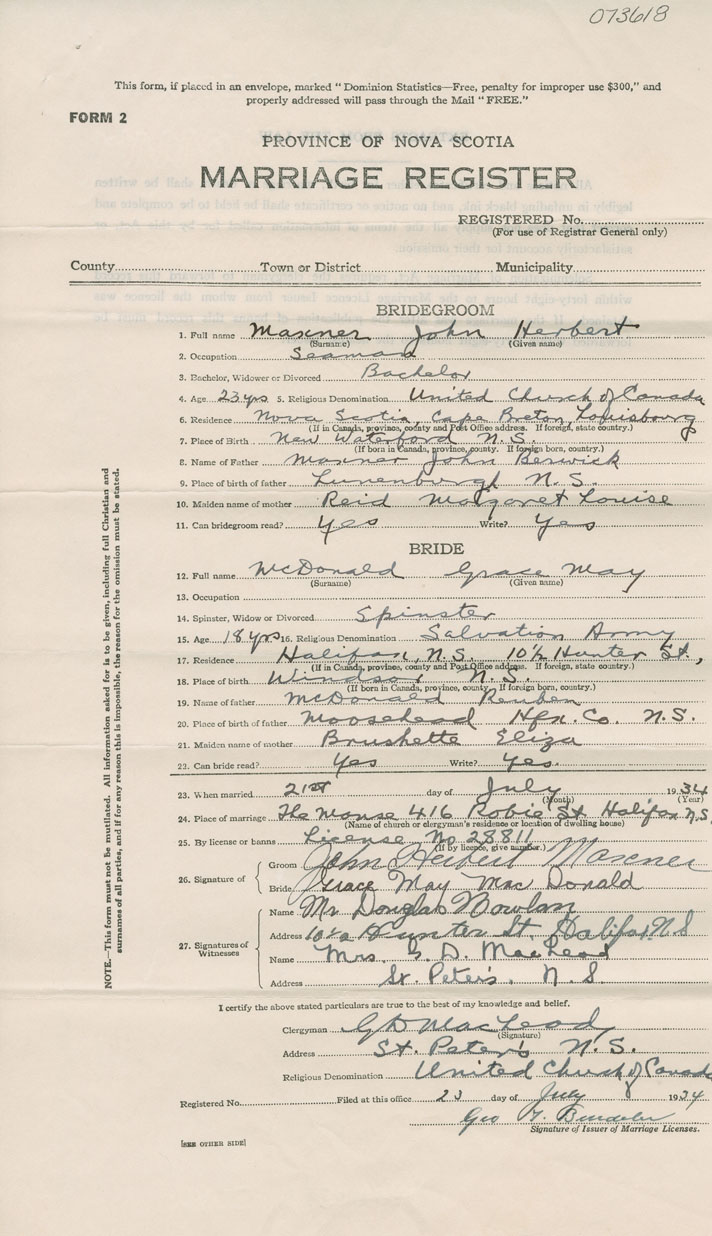 073618
This form, if placed in an envelope, marked "Dominion Statistics—Free, penalty for improper use $300," and
properly addressed will pass through the Mail "FREE."
FORM 2
PROVINCE OF NOVA SCOTIA
MARRIAGE REGISTER
REGISTERED No.
(For use of Registrar General only)
County Town or District Municipality
BRIDEGROOM
1. Full name Maxner John Herbert
(Surname) (Given name)
2. Occupation Seaman
3. Bachelor, Widower or Divorced Bachelor
4. Age 23 yrs 5. Religious Denomination United Church of Canada
6. Residence Nova Scotia, Cape Breton, Louisbourg
(If in Canada, province, county and Post Office address. If foreign, state country.)
7. Place of Birth New Waterford N.S.
(If born in Canada, province, county. If foreign born, country.)
8. Name of Father Maxner John Berwick
9. Place of birth of father Lunenburgh N.S.
10. Maiden name of mother Reid Margaret Louise
11. Can bridegroom read? Yes Write? Yes
BRIDE
12. Full name McDonald Grace May
(Surname) (Given name)
13. Occupation
14. Spinster, Widow or Divorced Spinster
15. Age 18 yrs 16. Religious Denomination Salvation Army
17. Residence Halifax, N.S. 10½ Hunter St.,
(If in Canada, province, county and Post Office address. If foreign, state country.)
18. Place of birth Windsor N.S.
(If born in Canada, province, county. If foreign born, country.)
19. Name of father McDonald Reuben
20. Place of birth of father Moosehead Hfx. Co. N.S.
21. Maiden name of mother Brushette Eliza
22. Can bride read? Yes Write? Yes.
23. When married 21st day of July 1934
(Month) (Year)
24. Place of marriage The Manse 416 Robie St Halifax N.S.
(Name of church or clergyman's residence or location of dwelling house)
25. By license or banns License No 28811
(If by licence, give number.)
26. Signature of
Groom John Herbert Maxner
Bride Grace May MacDonald
27. Signatures of Witnesses
Name Mr Douglas Nowlan
Address 10½ Hunter St. Halifax N.S
Name Mrs. G. D. MacLeod
Address St. Peter's, N.S.
I certify the above stated particulars are true to the best of my knowledge and belief.
Clergyman G D MacLeod
(Signature)
Address St. Peter's N.S.
Religious Denomination United Church of Canada
Registered No. Filed at this office 23 day of July 1934
Geo
Signature of Issuer of Marriage Licenses.
[SEE OTHER SIDE]
NOTE.—This form must not be mutilated. All information asked for is to be given, including full Christian and
surnames of all parties, and if for any reason this is impossible, the reason for the omission must be stated.